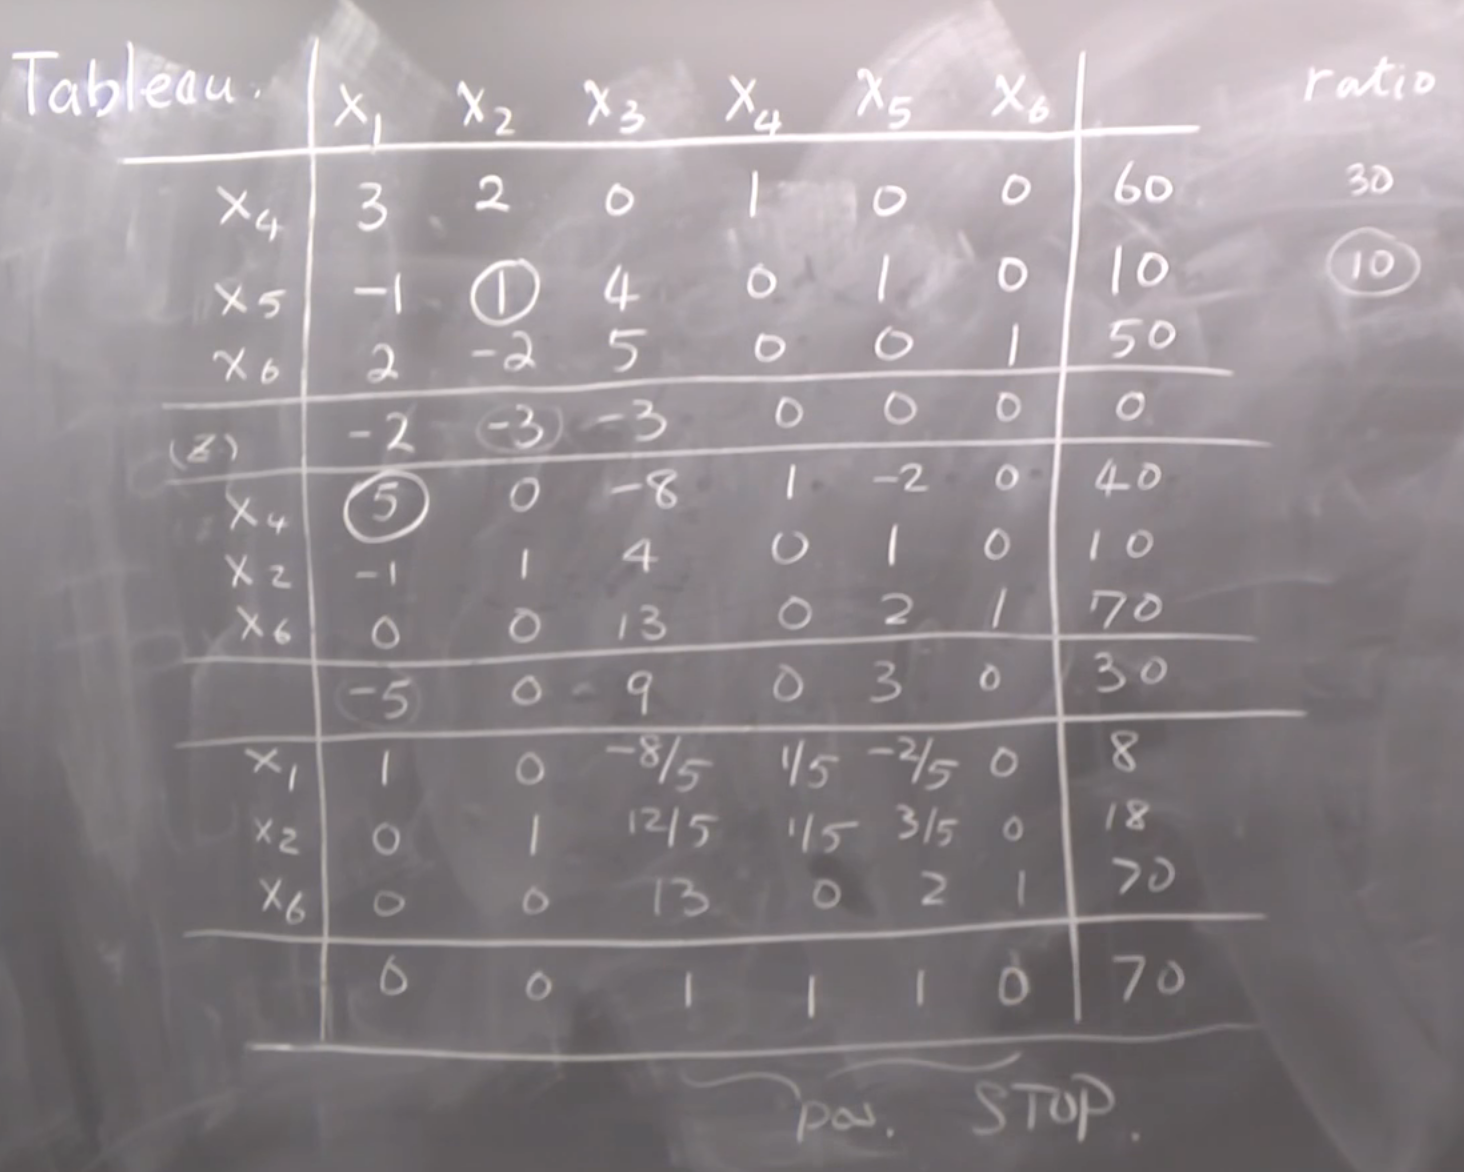 Tableau. x₁ x₂ x₃ x₄ x₅ x₆ ratio
x₄ 3 2 0 1 0 0 60 30
x₅ -1 1 4 0 1 0 10 10
x₆ 2 -2 5 0 0 1 50
(z) -2 -3 -3 0 0 0 0
x₄ 5 0 -8 1 -2 0 40
x₂ -1 1 4 0 1 0 10
x₆ 0 0 13 0 2 1 70
-5 0 9 0 3 0 30
x₁ 1 0 -8/5 1/5 -2/5 0 8
x₂ 0 1 12/5 1/5 3/5 0 18
x₆ 0 0 13 0 2 1 70
0 0 1 1 1 0 70
pos. STOP.